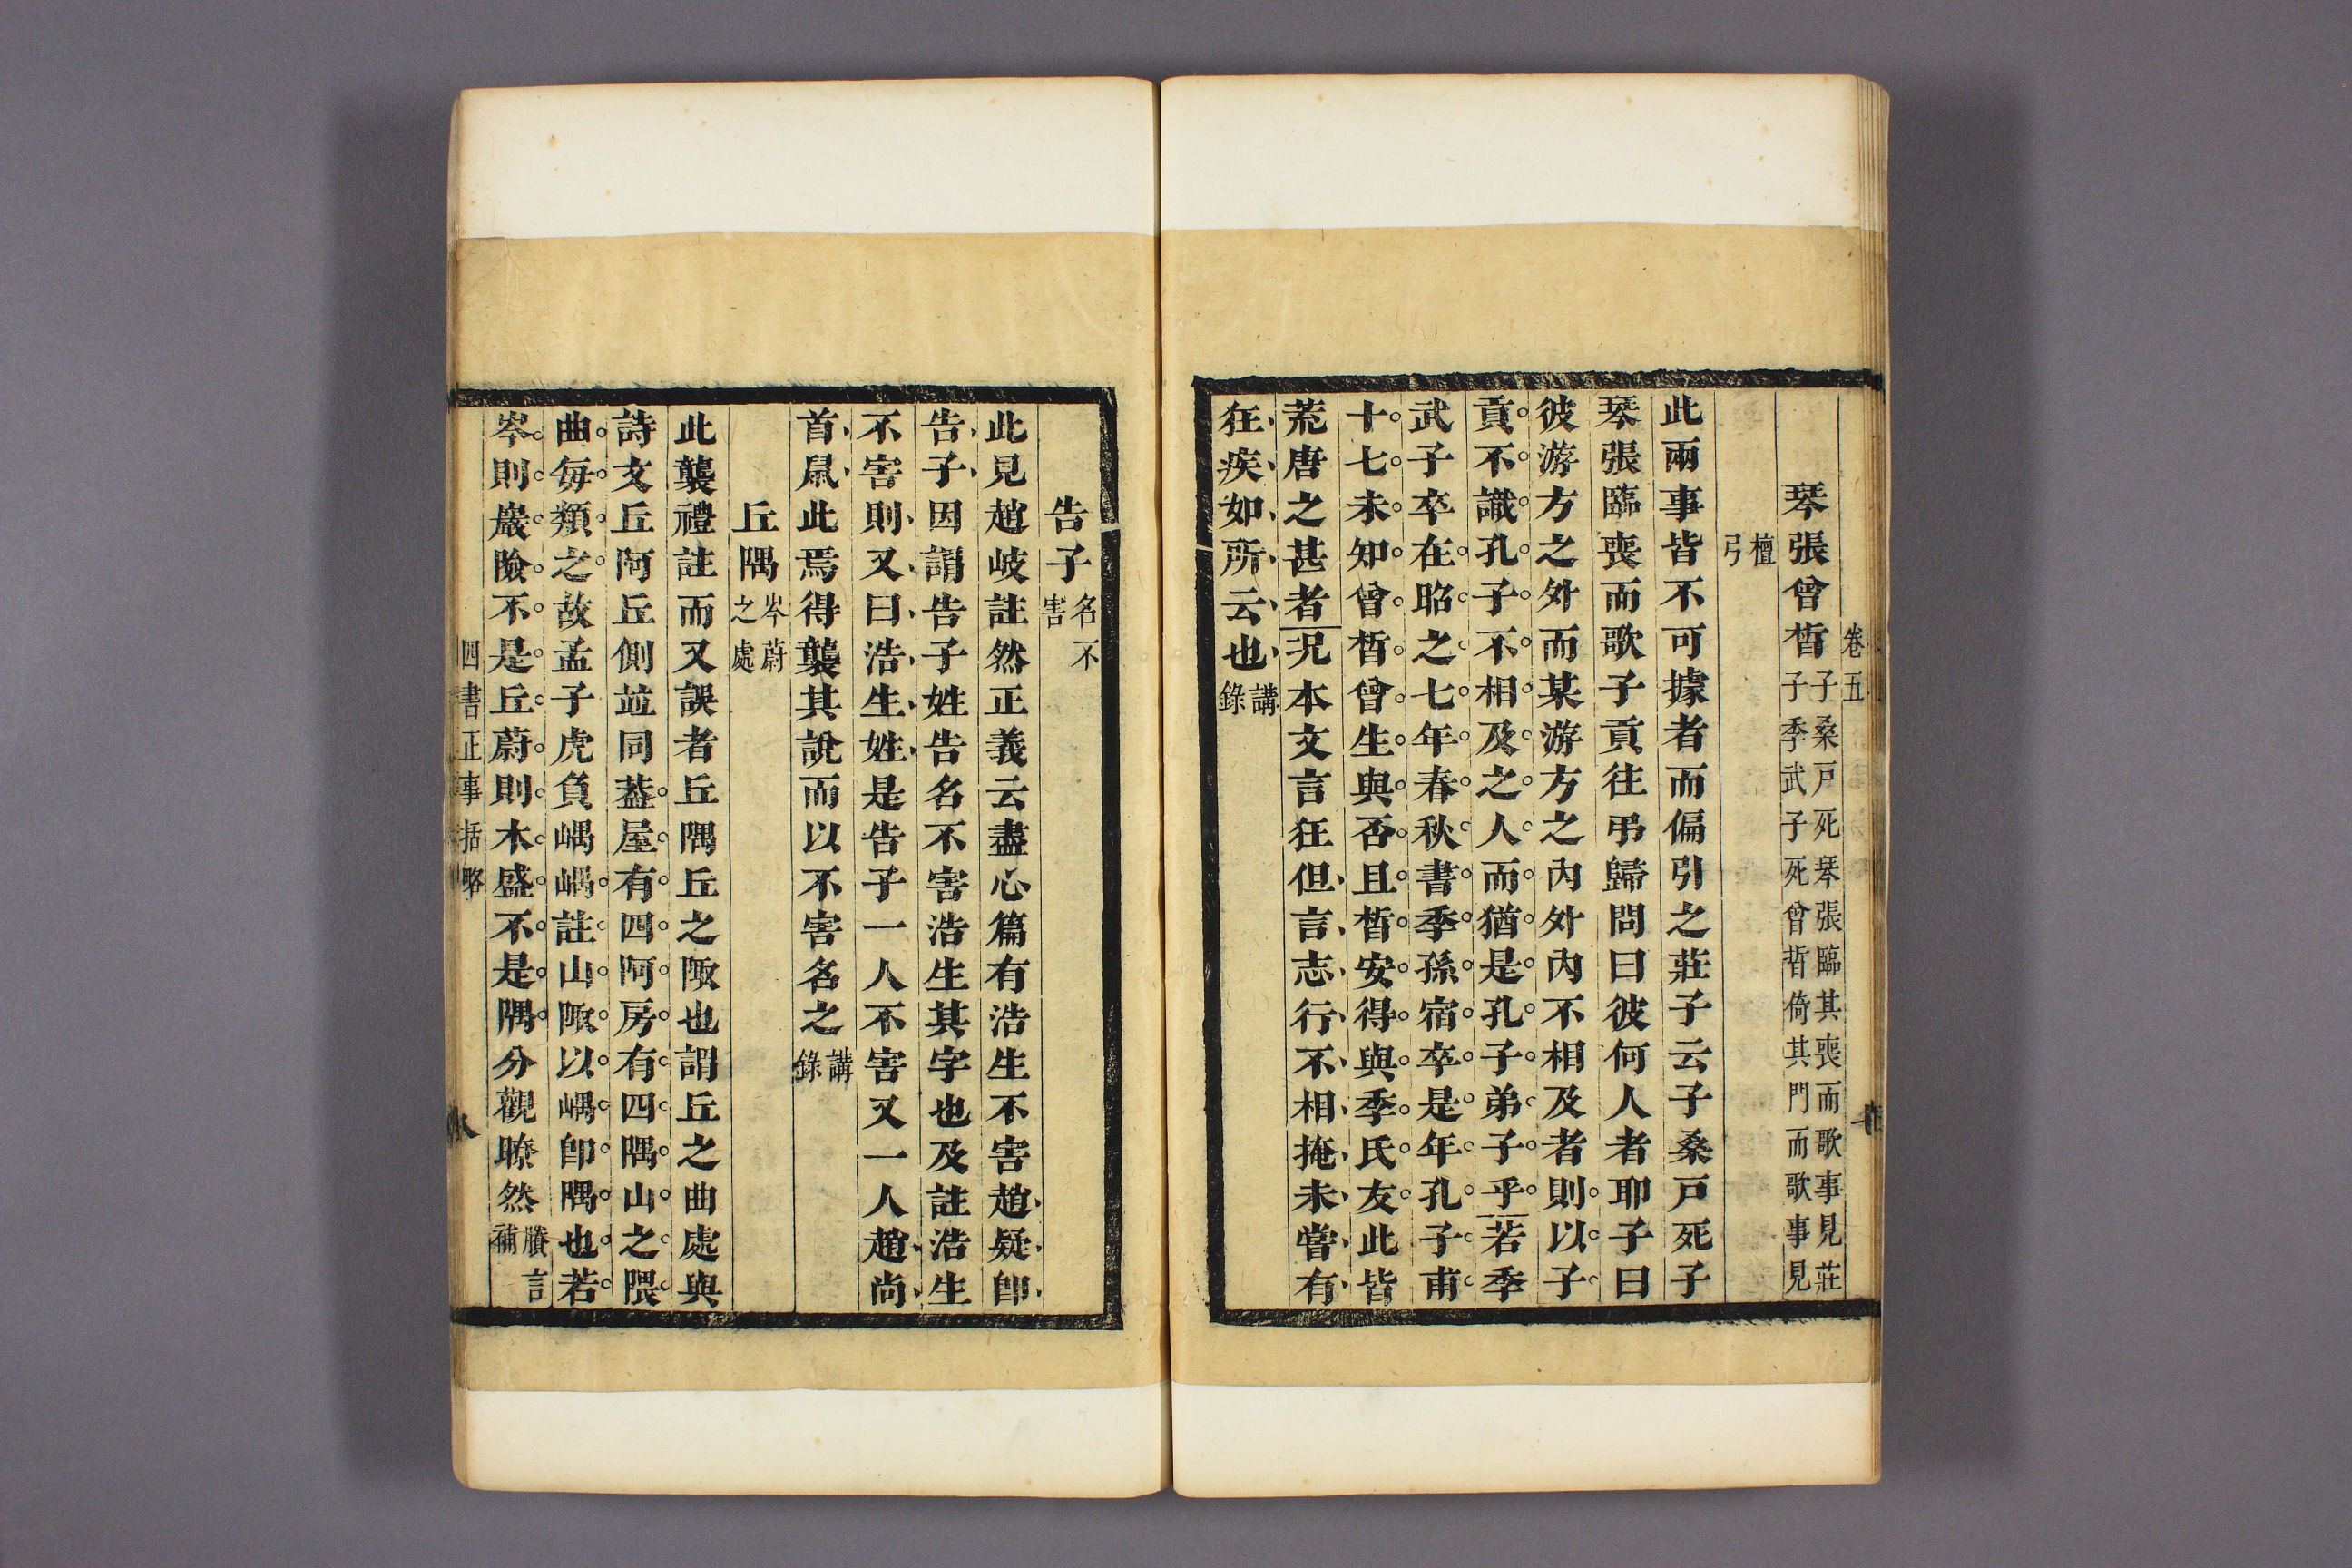 卷五
琴張曾晳子桑戸死琴張臨其喪而歌事見莊子季武子死曾晳倚其門而歌事見
檀弓
此兩事皆不可據者而偏引之莊子云子桑戸死子
琴張臨喪而歌子貢往弔歸問曰彼何人者耶子曰
彼游方之外而某游方之內外內不相及者則以子
貢不識孔子不相及之人而猶是孔子弟子乎若季
武子卒在昭之七年春秋書季孫宿卒是年孔子甫
十七未知曾晳曾生與否且晳安得與季氏友此皆
荒唐之甚者况本文言狂但言志行不相掩未嘗有
狂疾如所云也講錄
告子名不害
此見趙岐註然正義云盡心篇有浩生不害趙疑卽
告子因謂告子姓告名不害浩生其字也及註浩生
不害則又曰浩生姓是告子一人不害又一人趙尚
首鼠此焉得襲其說而以不害名之講錄
丘隅岑蔚之處
此襲禮註而又誤者丘隅丘之陬也謂丘之曲處與
詩文丘阿丘側並同葢屋有四阿房有四隅山之隈
曲每類之故孟子虎負嵎嵎註山陬以嵎卽隅也若
岑則巖險不是丘蔚則木盛不是隅分觀瞭然賸言補
四書正事括略